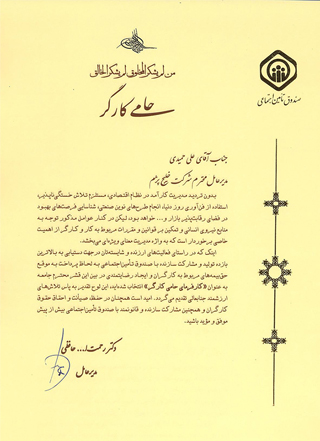 من لم یشکر المخلوق لم یشکر الخالق
صندوق تأمین اجتماعی
حامی کارگر
جناب آقای علی حمیدی
مدیرعامل محترم شرکت خلیج پرچم
بدون تردید مدیریت کارآمد در نظام اقتصادی، مستلزم تلاش خستگی‌ناپذیر،
استفاده از فن‌آوری روز دنیا، انجام طرح‌های نوین صنعتی، شناسایی فرصت‌های بهبود
در فضای رقابت‌پذیر بازار و... خواهد بود، لیکن در کنار عوامل مذکور توجه به
منابع نیروی انسانی و تمکین بر قوانین و مقررات مربوط به کار و کارگر از اهمیت
خاصی برخوردار است که به واژه مدیریت معنای ویژه‌ای می‌بخشد.
اینک که در راستای فعالیت‌های ارزنده و شایسته‌تان در جهت دستیابی به بالاترین
بازده تولید و مشارکت سازنده با صندوق تأمین اجتماعی به لحاظ پرداخت به موقع
حق‌بیمه‌های مربوط به کارگران و ایجاد رضایتمندی در بین این قشر محترم جامعه
به عنوان «کارفرمای حامی کارگر» انتخاب شده‌اید، این لوح تقدیر به پاس تلاش‌های
ارزشمند جنابعالی تقدیم می‌گردد. امید است همچنان در حفظ، صیانت و احقاق حقوق
کارگران و همچنین مشارکت سازنده و قانونمند با صندوق تأمین اجتماعی بیش از پیش
موفق و مؤید باشید.
دکتر رحمت ا... حافظی
مدیرعامل